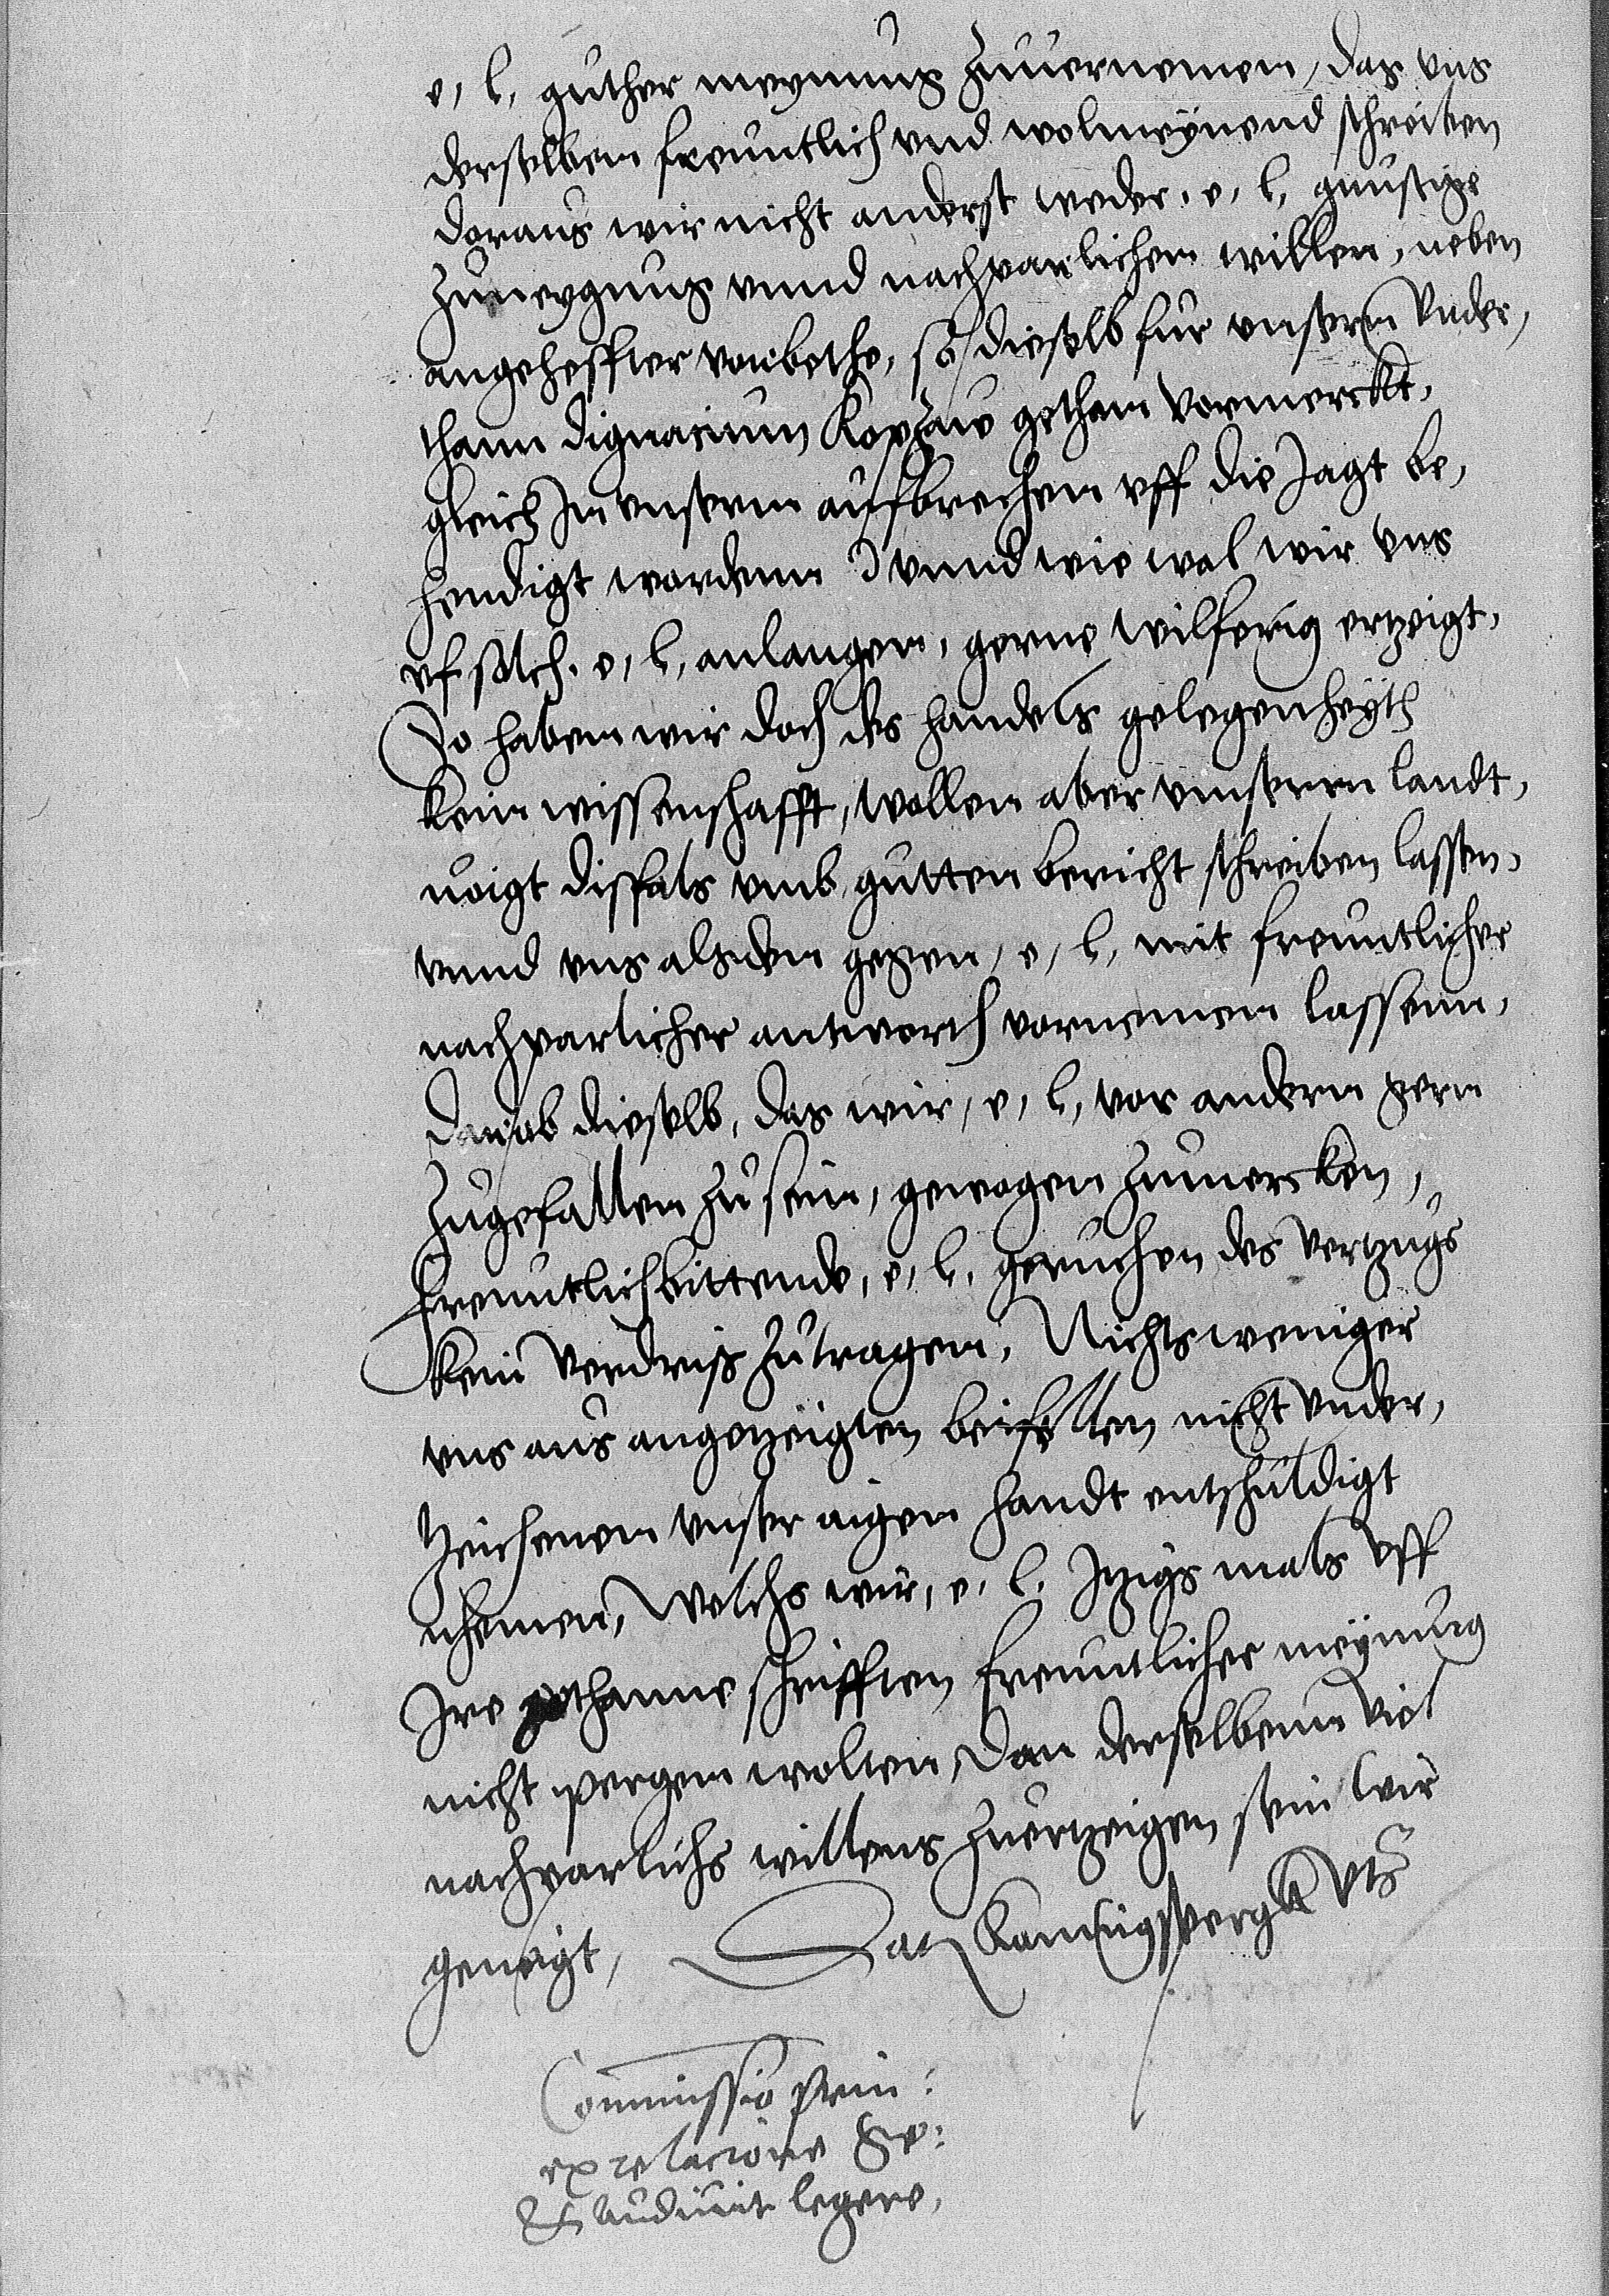 e, l, guther meynung zuuernemen, das vns
derselben freuntlich vnd wolmeynend schreiben
doraus wir nicht anderst weder, e, l, gunstige
zuneygung vnnd nachparlichen willen, neben
angeheffter vorbethe, so dieselb fur vnsern vnder,
thann gethan vormerckt,
gleich In vnserm auffbrechen vff die Jagt be,
hendigt wordenn vnnd wie wol wir vns
vf solch, e, l, anlangen, gerne wilferig ertzeigt,
So haben wir doch des handels gelegenheyth
kein wissenschafft, wollen aber vnserm landt,
uoigt disfals vmb gutten bericht schreiben lassen,
vnnd vns alsden gegen, e, l, mit freuntlicher
nachparlicher antworth vornemen lassenn,
dorob dieselb, das wir, e, l, vor andern gern
zugefallen zu sein, gewogen zumercken,
freuntlich bittende, e, l, geruchen des vertzugs
kein verdries zutragen, Nichts weniger
vns aus angetzeigten nicht vnder,
tzeichenen vnser aigen handt entschuldigt
nhemen, Welchs wir, e, l, Itzigs mals vff
Ire gethanne schrifften freuntlicher meynung
nicht pergen wolten, Dan derselbenn viel
nachparlichs willens zuertzeigen sein wir
geneigt, Dat Konigspergk vts
Commissio prin:
ex relacione
audiuit legere,